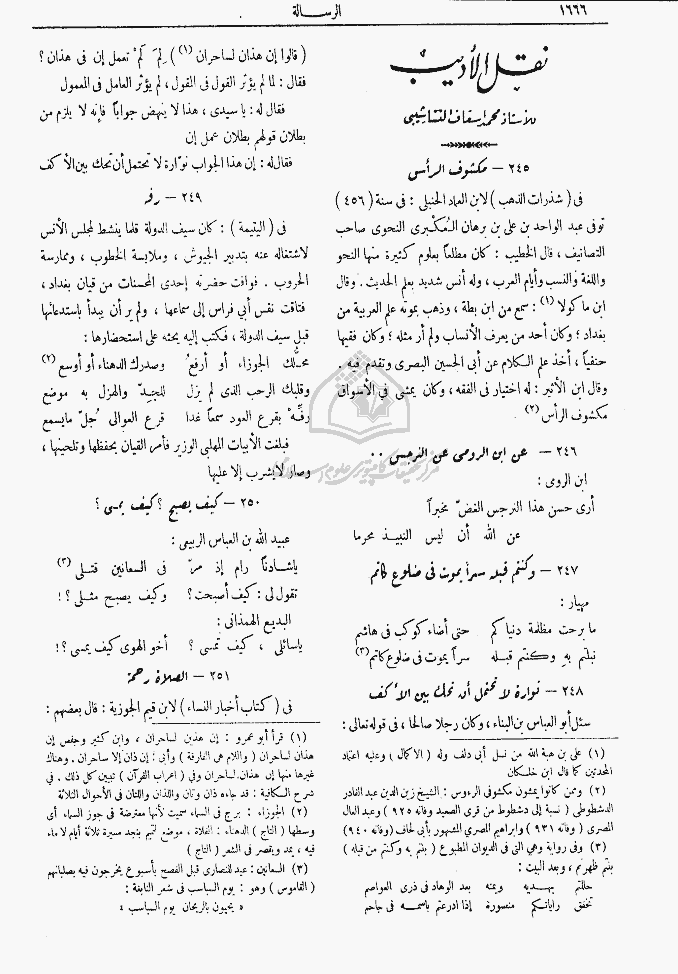 ١٦٦٦
الرسالة
نقل الأديب
للأستاذ محمد إسعاف النشاشيبي
٢٤٥ — مكشوف الرأس
فى ( شذرات الذهب ) لابن العماد الحنبلى : فى سنة ( ٤٥٦ )
توفى عبد الواحد بن على بن برهان العُكبرى النحوى صاحب
التصانيف ، قال الخطيب : كان مطلعاً بعلوم كثيرة منها النحو
واللغة والنسب وأيام العرب ، وله أنس شديد بعلم الحديث . وقال
ابن ماكولا (١) : سمع من ابن بطة ، وذهب بموته علم العربية من
بغداد ؛ وكان أحد من يعرف الأنساب ولم أر مثله ؛ وكان فقيها
حنفياً ، أخذ علم الكلام عن أبى الحسين البصرى وتقدم فيه .
وقال ابن الأثير : له اختيار فى الفقه ، وكان يمشى فى الأسواق
مكشوف الرأس (٢) .
٢٤٦ — عن ابن الرومى عن النرجس ..
ابن الروى :
أرى حسن هذا النرجس الغضّ مخبراً
عن الله أن ليس النبيذ محرما
٢٤٧ — وكنتم قبله سراً يموت فى ضلوع كاتم
مهيار :
ما برحت مظلمة دنياكم حتى أضاء كوكب فى هاشم
نبلتم به وكنتم قبله سراً يموت فى ضلوع كاتم(٣)
٢٤٨ — نوارة لا تحتمل أن تحك بين الأكف
سئل أبو العباس بن البناء ، وكان رجلا صالحا ، فى قوله تعالى :
(١) على بن هبة الله من نسل أبى دلف وله ( الاكمال ) وعليه اعتماد
المحدثين كما قال ابن خلكان
(٢) وممن كانوا يمشون مكشوفى الرءوس : الشيخ زين الدين عبد القادر
الدشطوطى ( نسبة إلى دشطوط من قرى الصعيد وفاته ٩٢٥ ) وعبد العال
المصرى ( وفاته ٩٣١ ) وابراهيم المصرى الشهور بأبى لحاف (وفاته ٩٤٠)
(٣) وفى رواية وهى التى فى الديوان المطبوع ( بنتم به وكنتم من قبله )
بنتم ظهرتم ، وبعد البيت :
حللتم بهديه ويمنه بعد الوهاد فى ذرى العواصم
تخفق راياتكم منصورة إذا ادرعتم باسمه فى جاحم
( قالوا إن هذان لساحران (١) ) لِمَ لَمْ تعمل إن فى هذان ؟
فقال : لما لم يؤثر القول فى المقول ، لم يؤثر العامل فى المعمول
فقال له : يا سيدى ، هذا لا ينهض جواباً فإنه لا يلزم من
بطلان قولهم بطلان عمل إن
فقال له : إن هذا الجواب نوّارة لا تحتمل أن تحك بين الأكف
٢٤٩ — رفه
فى ( اليتيمة ) : كان سيف الدولة قلما ينشط لمجلس الأنس
لاشتغاله عنه بتدبير الجيوش ، وملابسة الخطوب ، وممارسة
الحروب . فوافت حضرته إحدى المحسنات من قيان بغداد ،
فتاقت نفس أبى فراس إلى سماعها ، ولم ير أن يبدأ باستدعائها
قبل سيف الدولة ، فكتب إليه يحثه على استحضارها :
محلّك الجوزاء أو أرفعُ وصدرك الدهناء أو أوسع (٢)
وقلبك الرحب الذى لم يزل للجِدّ والهزل به موضع
رفِّهْ بقرع العود سمعاً غدا قرع العوالى جُلّ ما يسمع
فبلغت الأبيات المهلبى الوزير فأمر القيان بحفظها وتلحينها ،
وصار لا يشرب إلا عليها
٢٥٠ — كيف يصبح ؟ كيف يمسى ؟
عبيد الله بن العباس الربيعى :
ياشادناً رام إذ مرّ فى السعانين قتلى (٣)
تقول لى : كيف أصبحت ؟ وكيف يصبح مثلى ؟!
البديع الهمذانى :
ياسائلى ، كيف تمسى ؟ أخو الهوى كيف يمسى ؟!
٢٥١ — الصلاة رحمة
فى ( كتاب أخبار النساء ) لابن قيم الجوزية : قال بعضهم :
(١) قرأ أبو عمرو : إن هذين لساحران ، وابن كثير وحفص إن
هذان لساحران ( واللام هى الفارقة ) وأبى : إن ذان إلا ساحران . وهناك
غيرها منها إن هذان لساحران وفى ( اعراب القرآن ) تبيين كل ذلك . فى
شرح الكافية : قد جاءه ذان وتان واللذان واللتان فى الأحوال الثلاثة
(٢) الجوزاء : برج فى السماء سميت لأنها معترضة فى جوز السماء أى
وسطها ( التاج ) الدهناء : الفلاة . موضع لتميم بنجد مسيرة ثلاثة أيام لا ماء
فيه ، يمد ويقصر فى الشعر ( التاج )
(٣) السعانين : عيد للنصارى قبل الفصح بأسبوع يخرجون فيه بصلبانهم
( القاموس ) وهو : يوم السباسب فى شعر النابغة :
« يحيون بالريحان يوم السباسب »